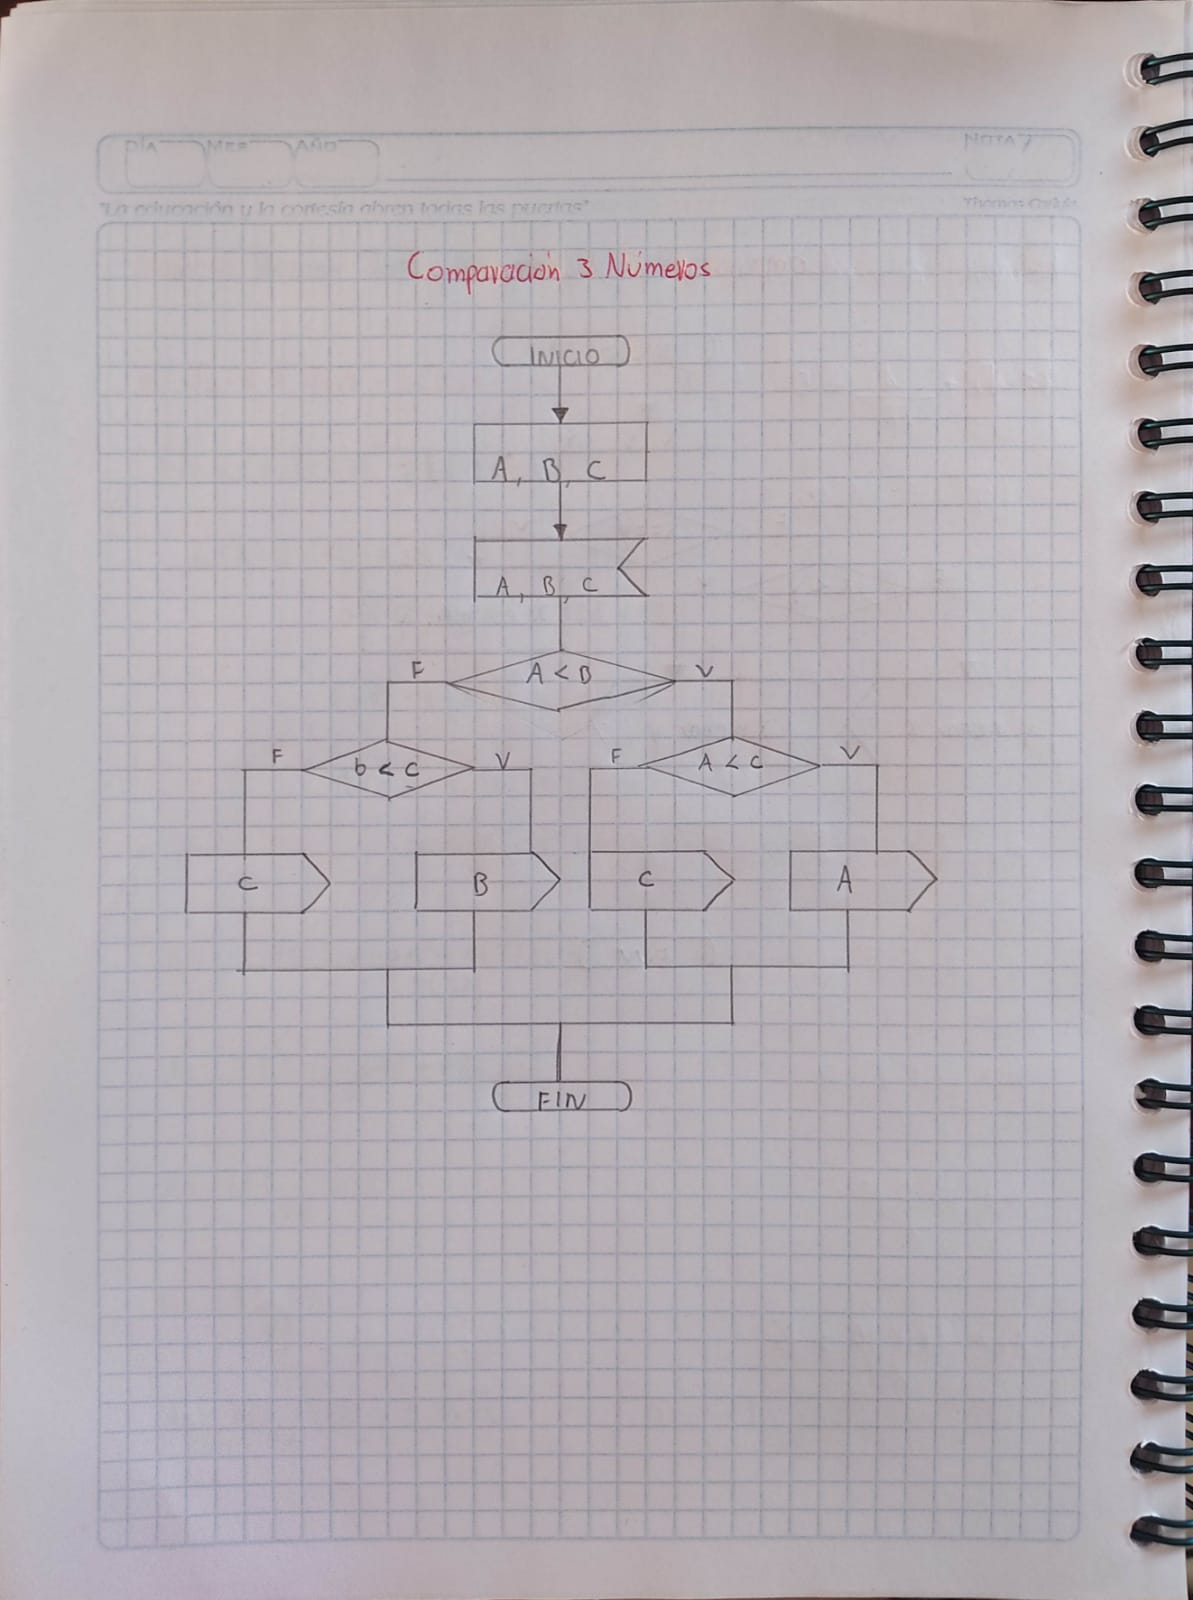 DÍA MES AÑO NOTA
"La educación y la cortesía abren todas las puertas" Thomas
Comparación 3 Números
INICIO
A, B, C
A, B, C
F A < B V
F b < c V F A < C V
C B C A
FIN